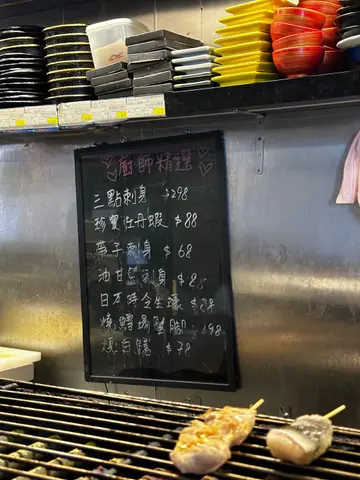 ♡廚師精選♡
三點刺身 $298
珍寶牡丹蝦 $88
帶子刺身 $68
油甘魚刺身 $8
日本時令生蠔 $
燒鱈場蟹腳 198
燒白鱔 $78